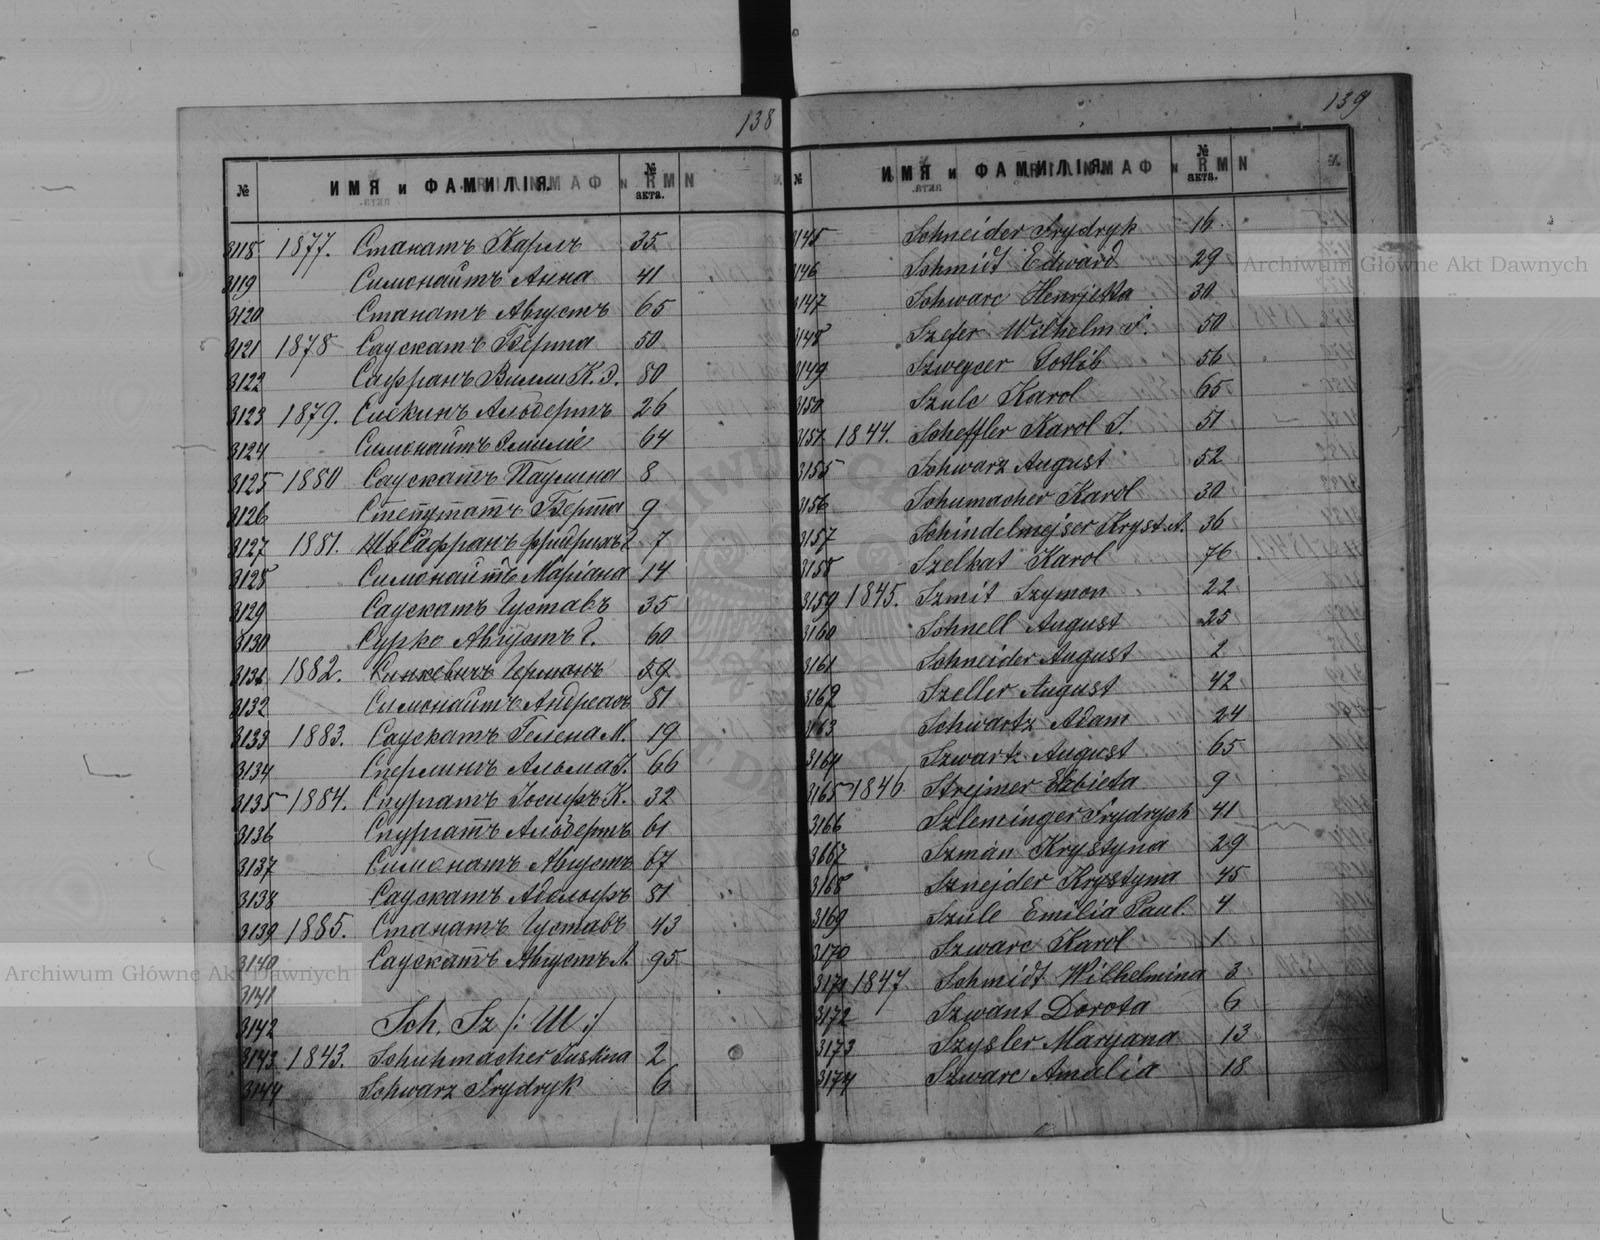 138
№ ИМЯ и ФАМИЛІЯ. № акта.
3118 1877. Станатъ Карлъ 35
3119 Симонайтъ Анна 41
3120 Станатъ Августъ 65
3121 1878 Саускатъ Берта 50
3122 Сафранъ Вилли К. Э. 80
3123 1879. Силкинъ Альбертъ 26
3124 Симонайтъ Эмилie 64
3125 1880 Саускатъ Паулина 8
3126 Степутатъ Берта 9
3127 1881. Сафранъ Фридрихъ 7
3128 Симонайтъ Маріана 14
3129 Саускатъ Густавъ 35
3130 Сурко Августъ Г. 60
3131 1882. Синкевичъ Германъ 59
3132 Симонайтъ Андреасъ 81
3133 1883. Саускатъ Гелена М. 19
3134 Сперлингъ Альма 66
3135 1884. Спургатъ Іосифъ К. 32
3136 Спургатъ Альбертъ 61
3137 Симонатъ Августъ 67
3138 Саускатъ Адольфъ 81
3139 1885. Станатъ Густавъ 43
3140 Саускатъ Августъ А. 95
3141
3142 Sch. Sz /: Ш :/
3143 1843. Schuhmacher Justina 2
3144 Schwarz Frydryk 6
139
№ ИМЯ и ФАМИЛІЯ № акта.
3145 Schneider Frydryk 16
3146 Schmidt Edward 29
3147 Schwarc Henrjetta 30
3148 Szefer Wilhelm F. 50
3149 Szweycer Gotlib 56
3150 Szulc Karol 65
3157 1844. Scheffler Karol J. 51
3155 Schwarz August 52
3156 Schumacher Karol 30
3157 Schindelmejser Kryst. A. 36
3158 Szelkat Karol 76
3159 1845. Szmit Szymon 22
3160 Schnell August 25
3161 Schneider August 2
3162 Szeller August 42
3163 Schwartz Adam 24
3164 Szwartz August 65
3165 1846 Strejmer Elzbieta 9
3166 Szleminger Frydrych 41
3167 Szman Krystyna 29
3168 Sznejder Krystyna 45
3169 Szulc Emilia Paul. 4
3170 Szwarc Karol 1
3171 1847 Schmidt Wilhelmina 3
3172 Szwant Dorota 6
3173 Szysler Maryana 13
3174 Szwarc Amalia 18
Archiwum Główne Akt Dawnych
Archiwum Główne Akt Dawnych